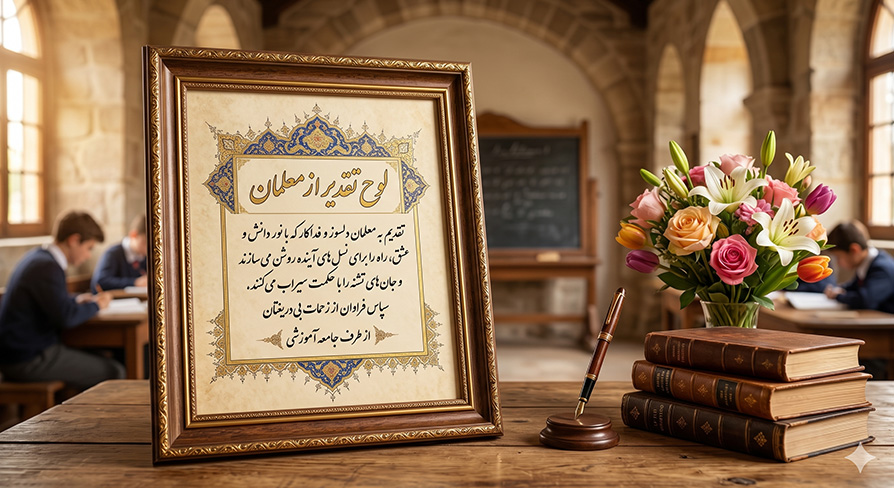 لوح تقدیر از معلمان
تقدیم به معلمان دلسوز و فداکار که با نور دانش و
عشق، راه را برای نسل های آینده روشن می سازند
و جان های تشنه را با حکمت سیراب می کنند.
سپاس فراوان از زحمات بی دریغتان
از طرف جامعه آموزشی